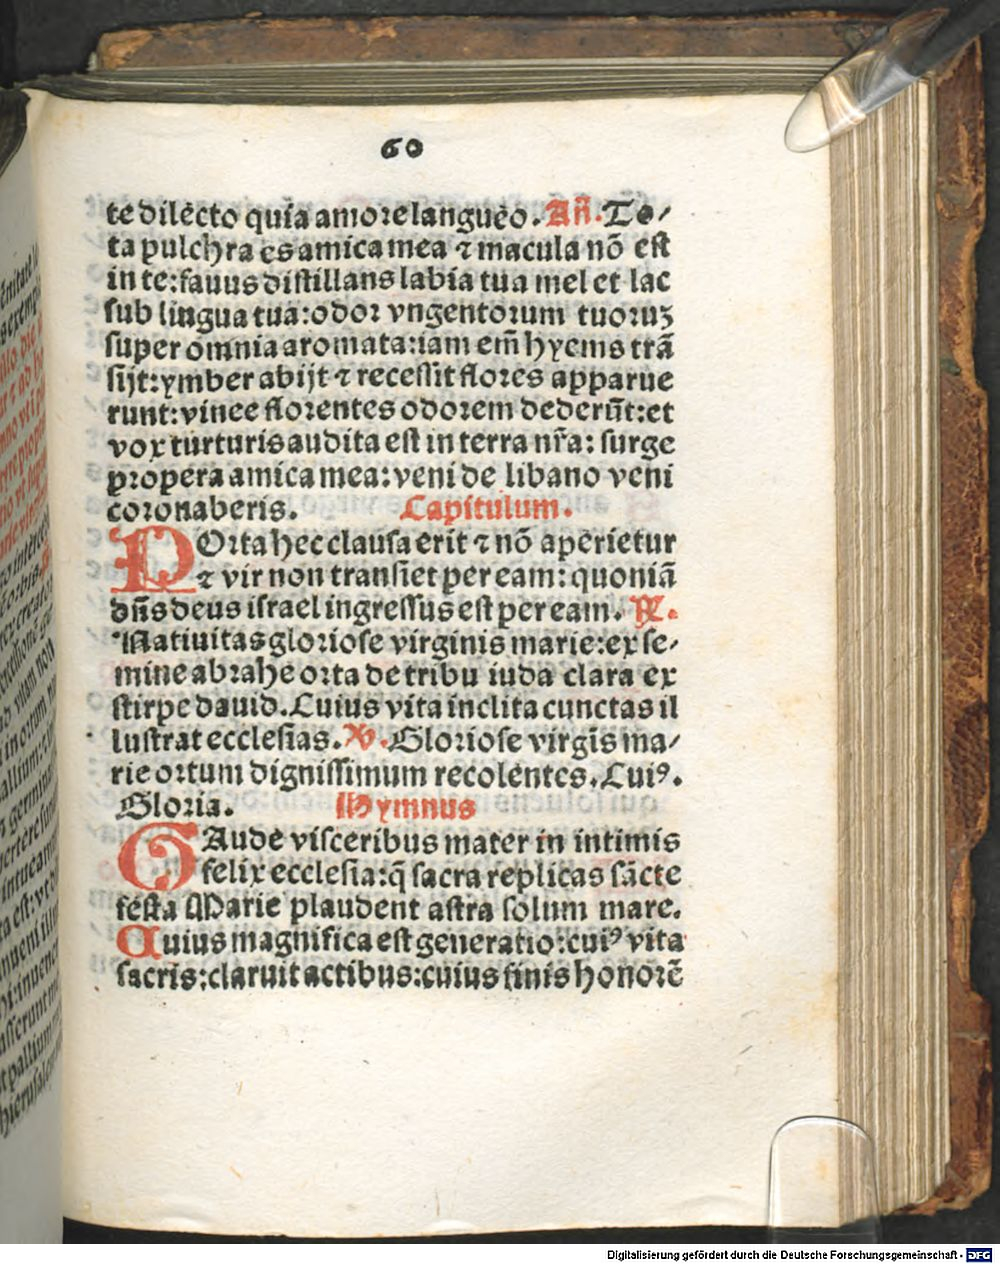 60
te dilecto quia amore langueo. Añ. To⸗
ta pulchra es amica mea ⁊ macula nõ est
in te: fauus distillans labia tua mel et lac
sub lingua tua: odor vngentorum tuoruꝫ
super omnia aromata: iam em̃ hyems trã
sijt: ymber abijt ⁊ recessit flores apparue
runt: vinee florentes odorem dederũt: et
vox turturis audita est in terra nr̃a: surge
propera amica mea: veni de libano veni
coronaberis. Capitulum.
POrta hec clausa erit ⁊ nõ aperietur
⁊ vir non transiet per eam: quoniã
dñs deus israel ingressus est per eam. ℟.
Natiuitas gloriose virginis marie: ex se⸗
mine abrahe orta de tribu iuda clara ex
stirpe dauid. Cuius vita inclita cunctas il
lustrat ecclesias. ℣. Gloriose virgĩs ma⸗
rie ortum dignissimum recolentes. Cuiꝰ.
Gloria. Hymnus
GAude visceribus mater in intimis
felix ecclesia: q̃ sacra replicas sãcte
festa Marie plaudent astra solum mare.
Cuius magnifica est generatio: cuiꝰ vita
sacris: claruit actibus: cuius finis honorẽ
Digitalisierung gefördert durch die Deutsche Forschungsgemeinschaft - DFG